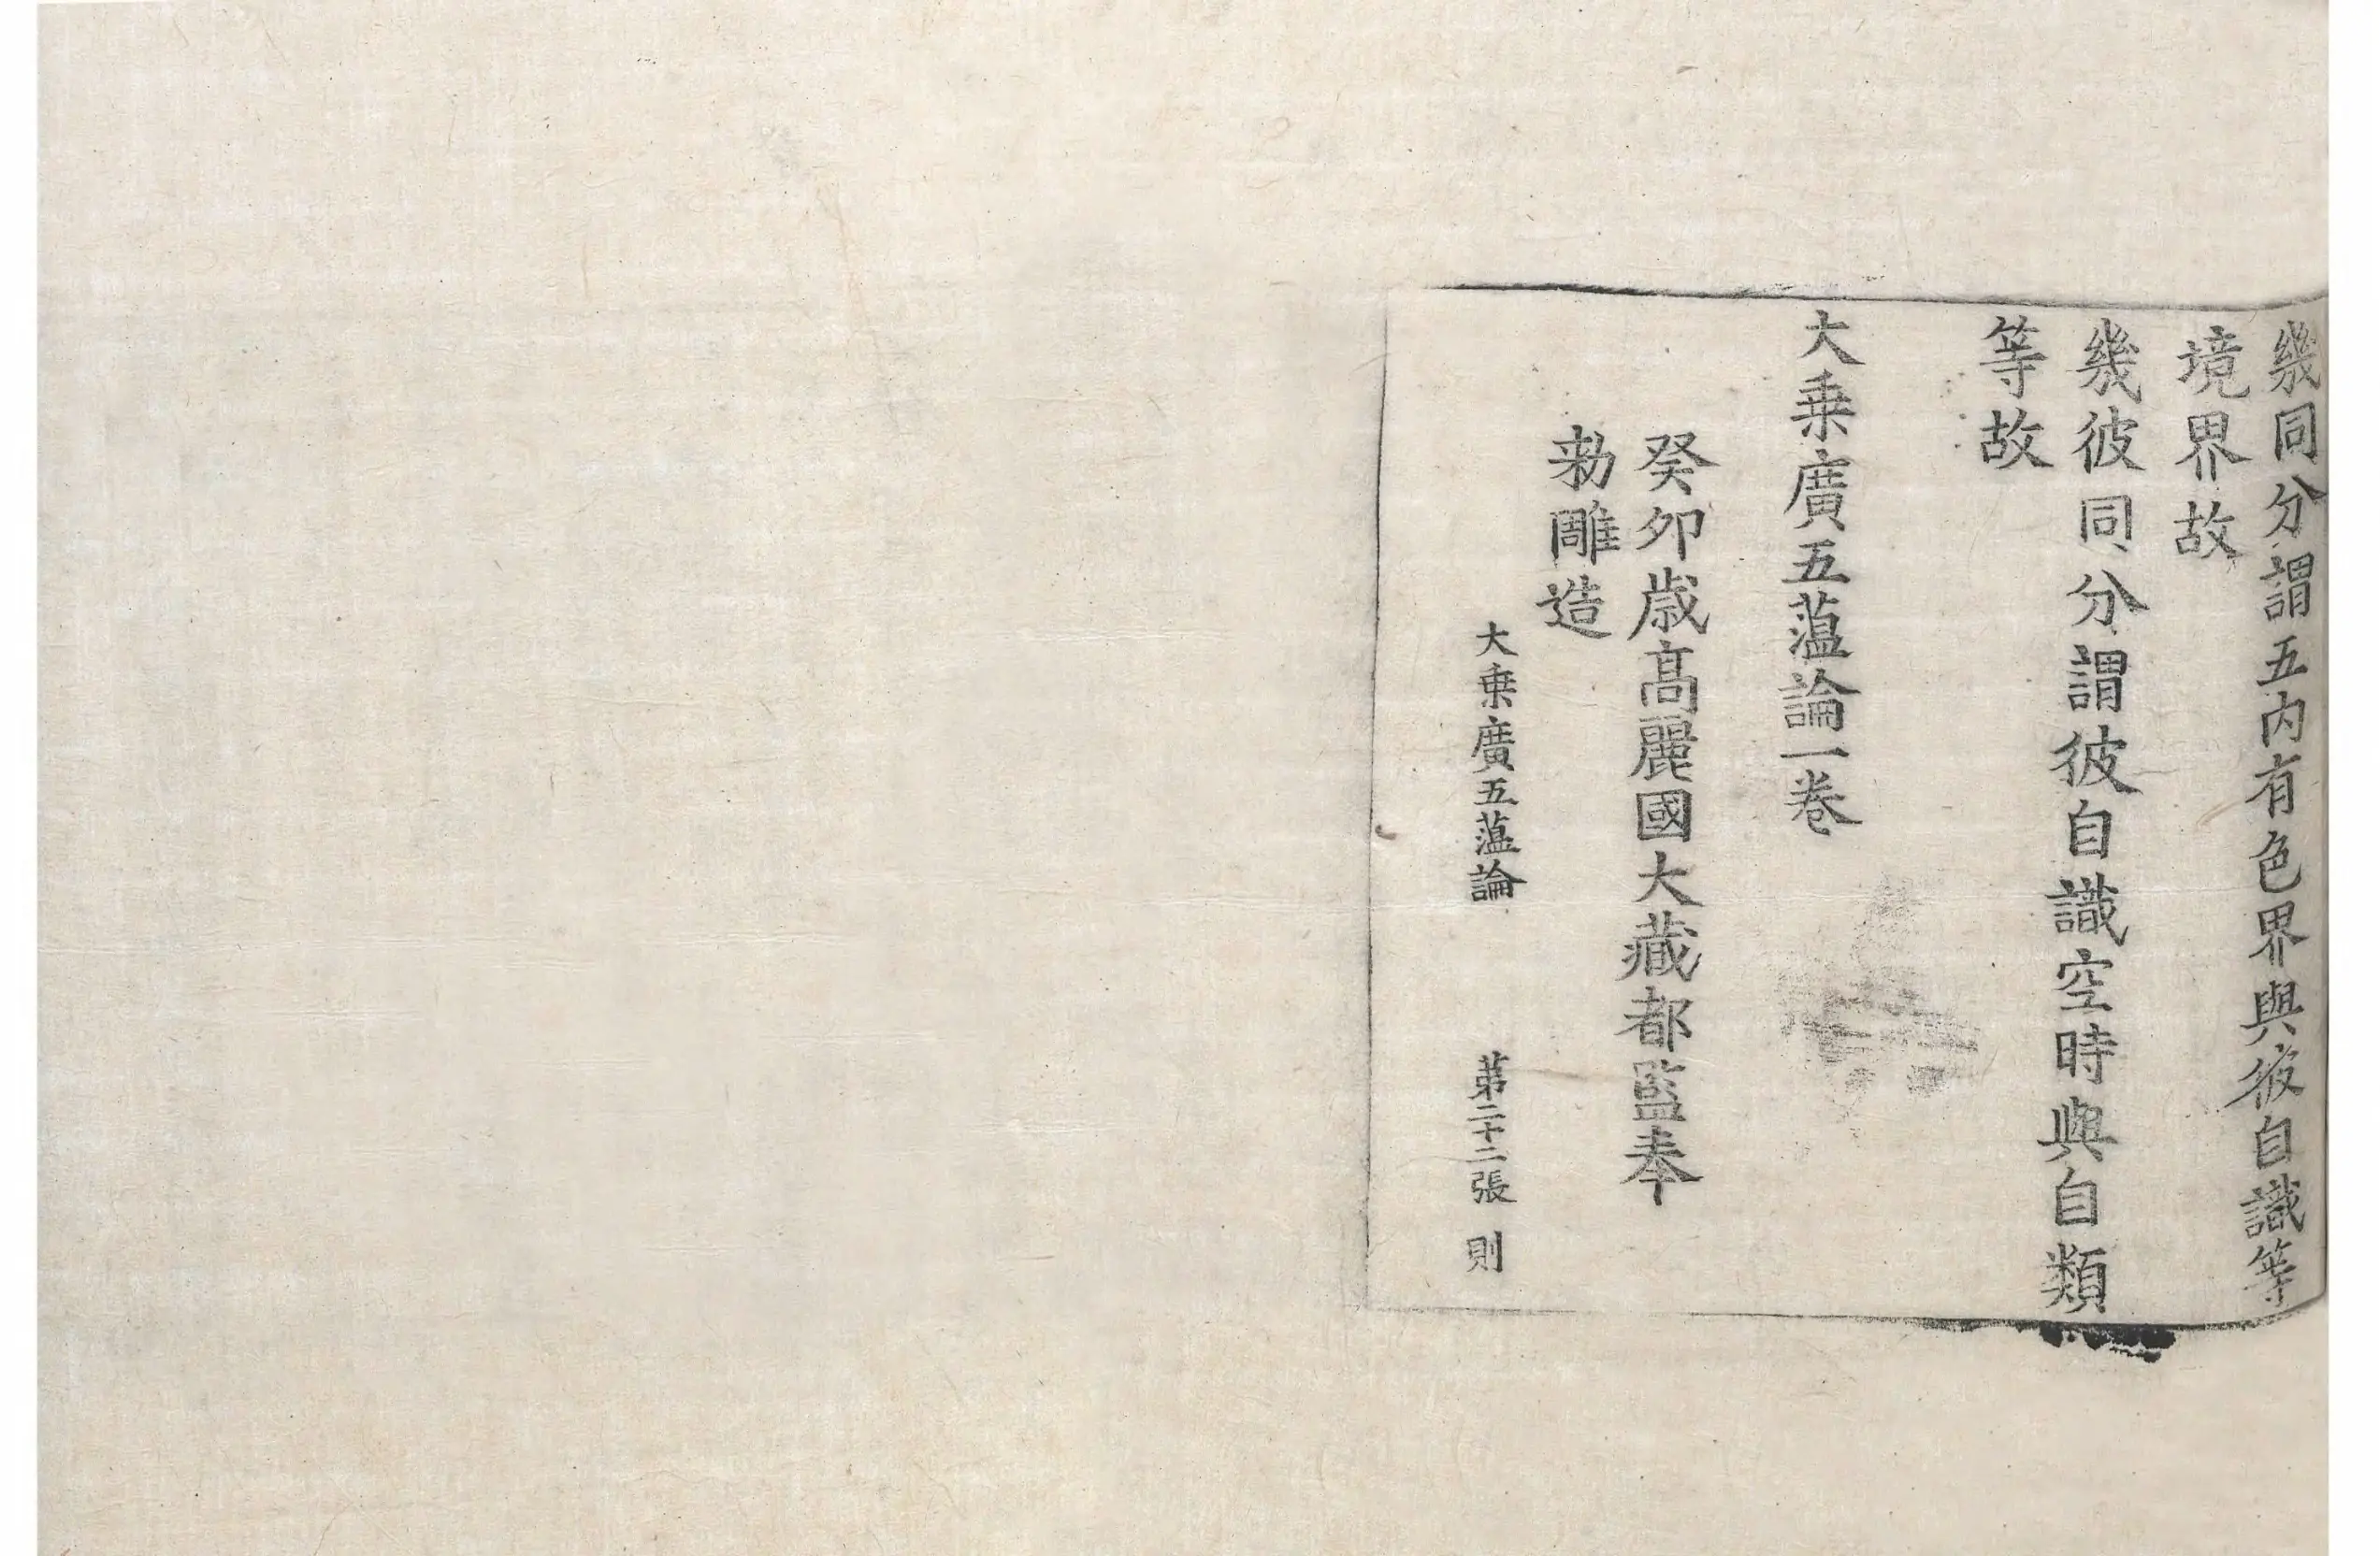 幾同分謂五内有色界與彼自識等
境界故
幾彼同分謂彼自識空時與自類
等故
大乗廣五薀論一卷
癸卯歳髙麗國大藏都監奉
勑雕造
大乗廣五薀論 苐二十二張 則